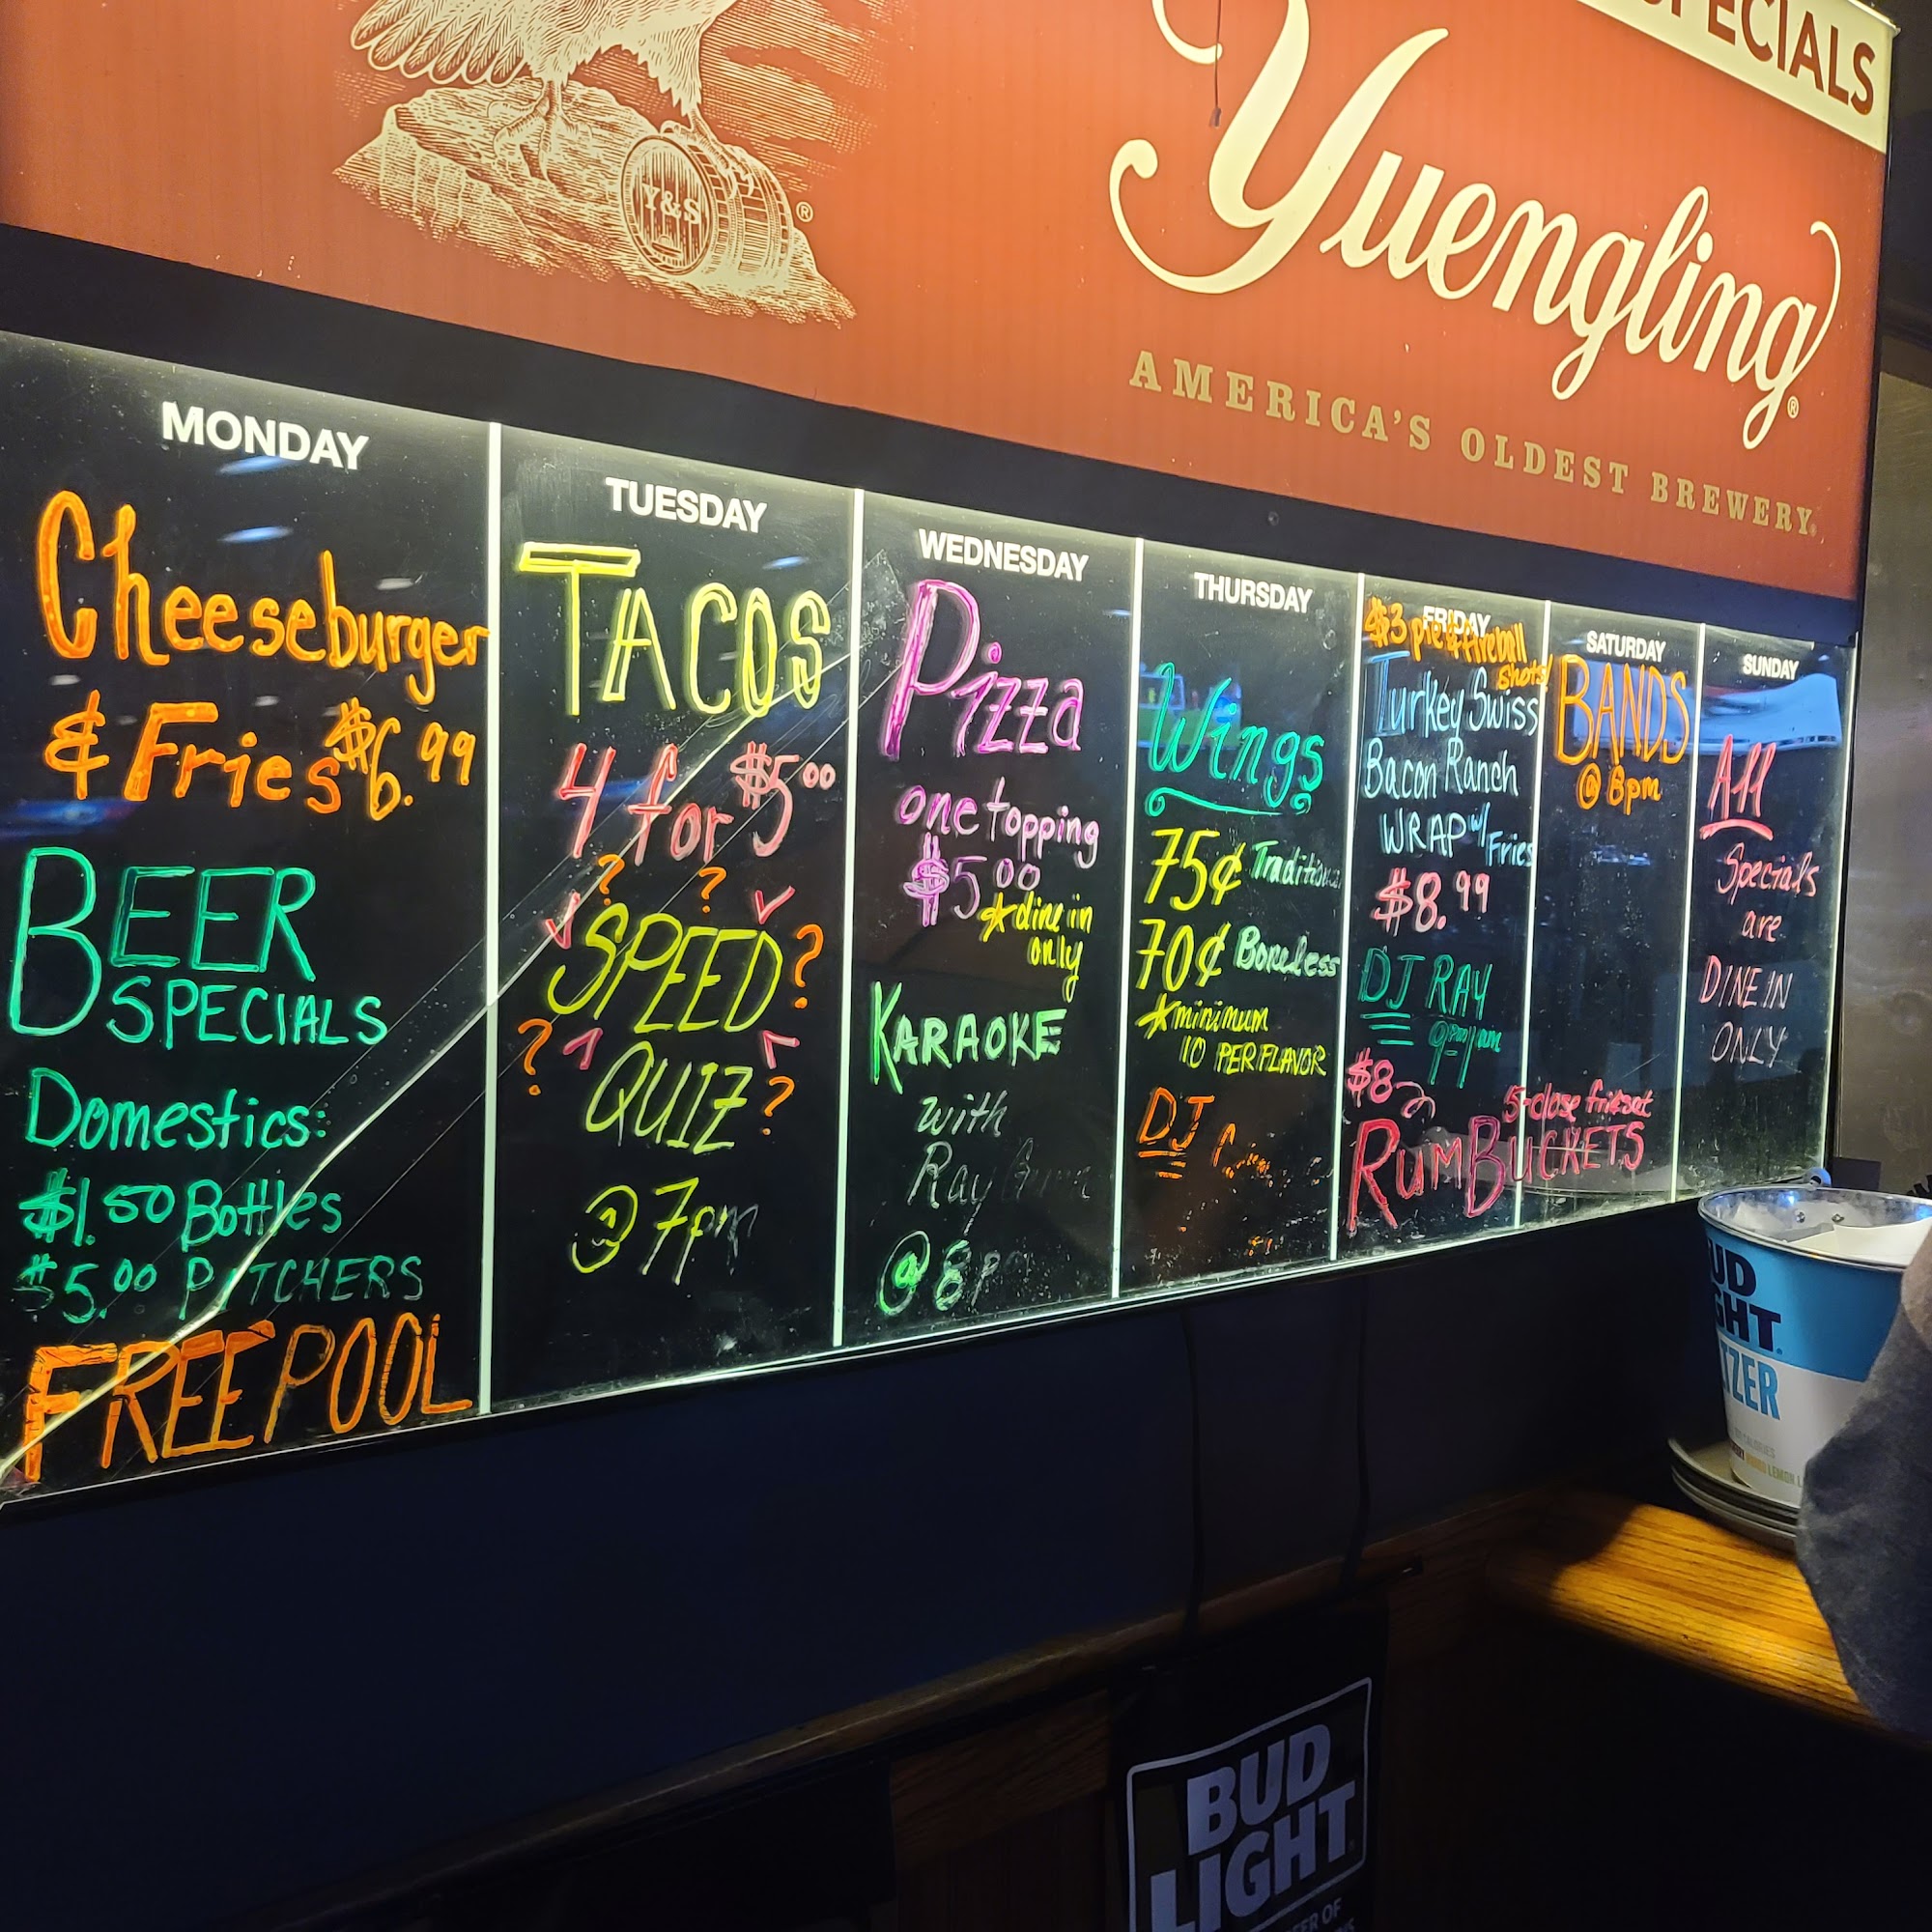 SPECIALS
Yuengling®
Y&S ®
AMERICA'S OLDEST BREWERY
MONDAY
Cheeseburger
& Fries $6.99
BEER
SPECIALS
Domestics:
$1.50 Bottles
$5.00 PITCHERS
FREE POOL
TUESDAY
TACOS
4 for $5.00
? ?
SPEED ?
? QUIZ ?
@ 7pm
WEDNESDAY
Pizza
one topping
$5.00
*dine in
only
KARAOKE
with
Ray
@ 8p
THURSDAY
Wings
75¢ Traditional
70¢ Boneless
*minimum
10 PER FLAVOR
DJ
FRIDAY
$3 pie & fireball
shots!
Turkey Swiss
Bacon Ranch
WRAP w/
Fries
$8.99
DJ RAY
$8
5-close fri & sat
RUM BUCKETS
SATURDAY
BANDS
@ 8pm
SUNDAY
All
Specials
are
DINE IN
ONLY
BUD
LIGHT
BUD
LIGHT